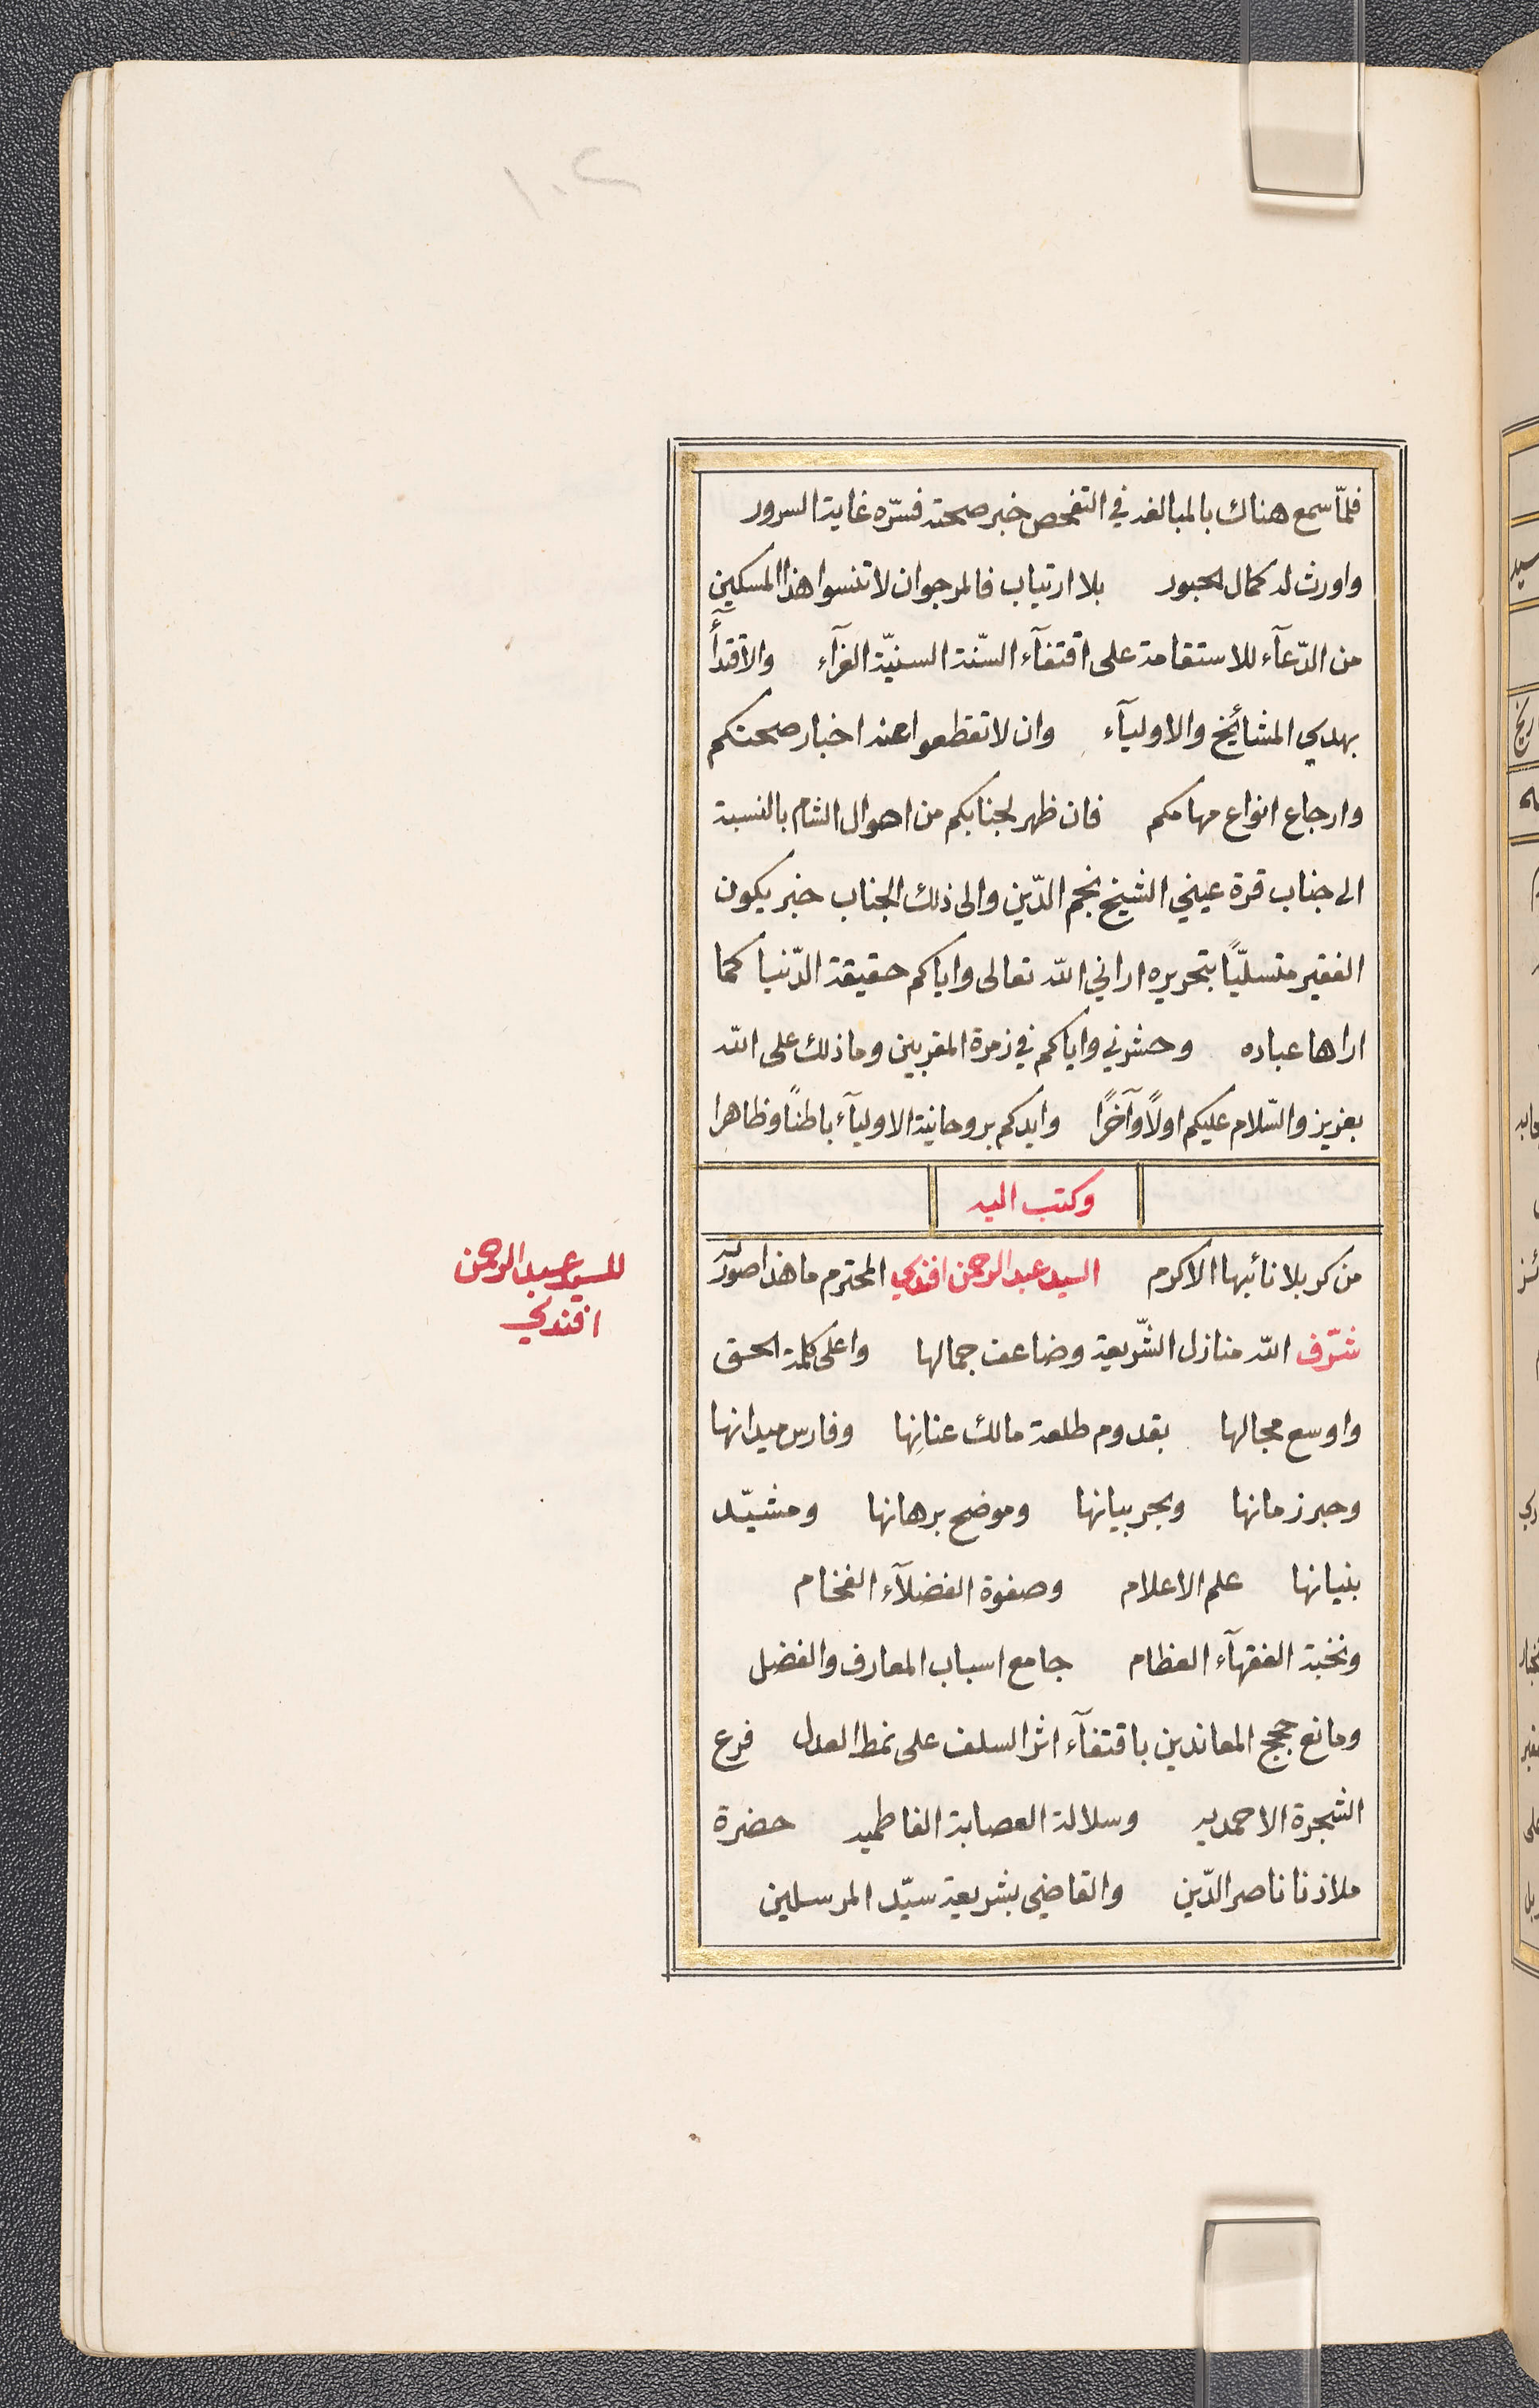 ٢٠١
فلمّا سمع هناك بالمبالغه في التفحص خبر صحته فسرّه غاية السرور
واورث له كمال الحبور بلا ارتياب فالمرجو ان لا تنسوا هذا المسكين
من الدّعآء للاستقامة على اقتفآء السّنة السنيّة الغرآء والاقتدآء
بهدي المشائخ والاوليآء وان لا تقطعوا عنه اخبار صحتكم
وارجاع انواع مهامكم فان ظهر لجنابكم من اهوال الشام بالنسبة
الى جناب قرة عيني الشيخ نجم الدّين والى ذلك الجناب خبر يكون
الفقير متسليّاً بتحريره اراني الله تعالى واياكم حقيقة الدّنيا كما
اراها عباده وحشرني واياكم في زمرة المقربين وما ذلك على الله
بعزيز والسّلام عليكم اولاً وآخراً وايدكم بروحانية الاوليآء باطناً وظاهرا
وكتب اليه
من كربلا نائبها الاكرم السيد عبد الرحمن افندي المحترم ما هذا صورته
شرّف الله منازل الشّريعة وضاعف جمالها واعلى كلمة الحق
واوسع مجالها بقدوم طلعة مالك عنانِها وفارس ميدانها
وحبر زمانها وبحر بيانها وموضح برهانها ومشيّد
بنيانها علم الاعلام وصفوة الفضلآء الفخام
ونخبة الفقهآء العظام جامع اسباب المعارف والفضل
ومانع حجج المعاندين باقتفآء اثر السلف على نمط العدل فرع
الشجرة الاحمديه وسلالة العصابة الفاطميه حضرة
ملاذنا ناصر الدّين والقاضي بشريعة سيّد المرسلين
للسيد عبد الرحمن
افندي